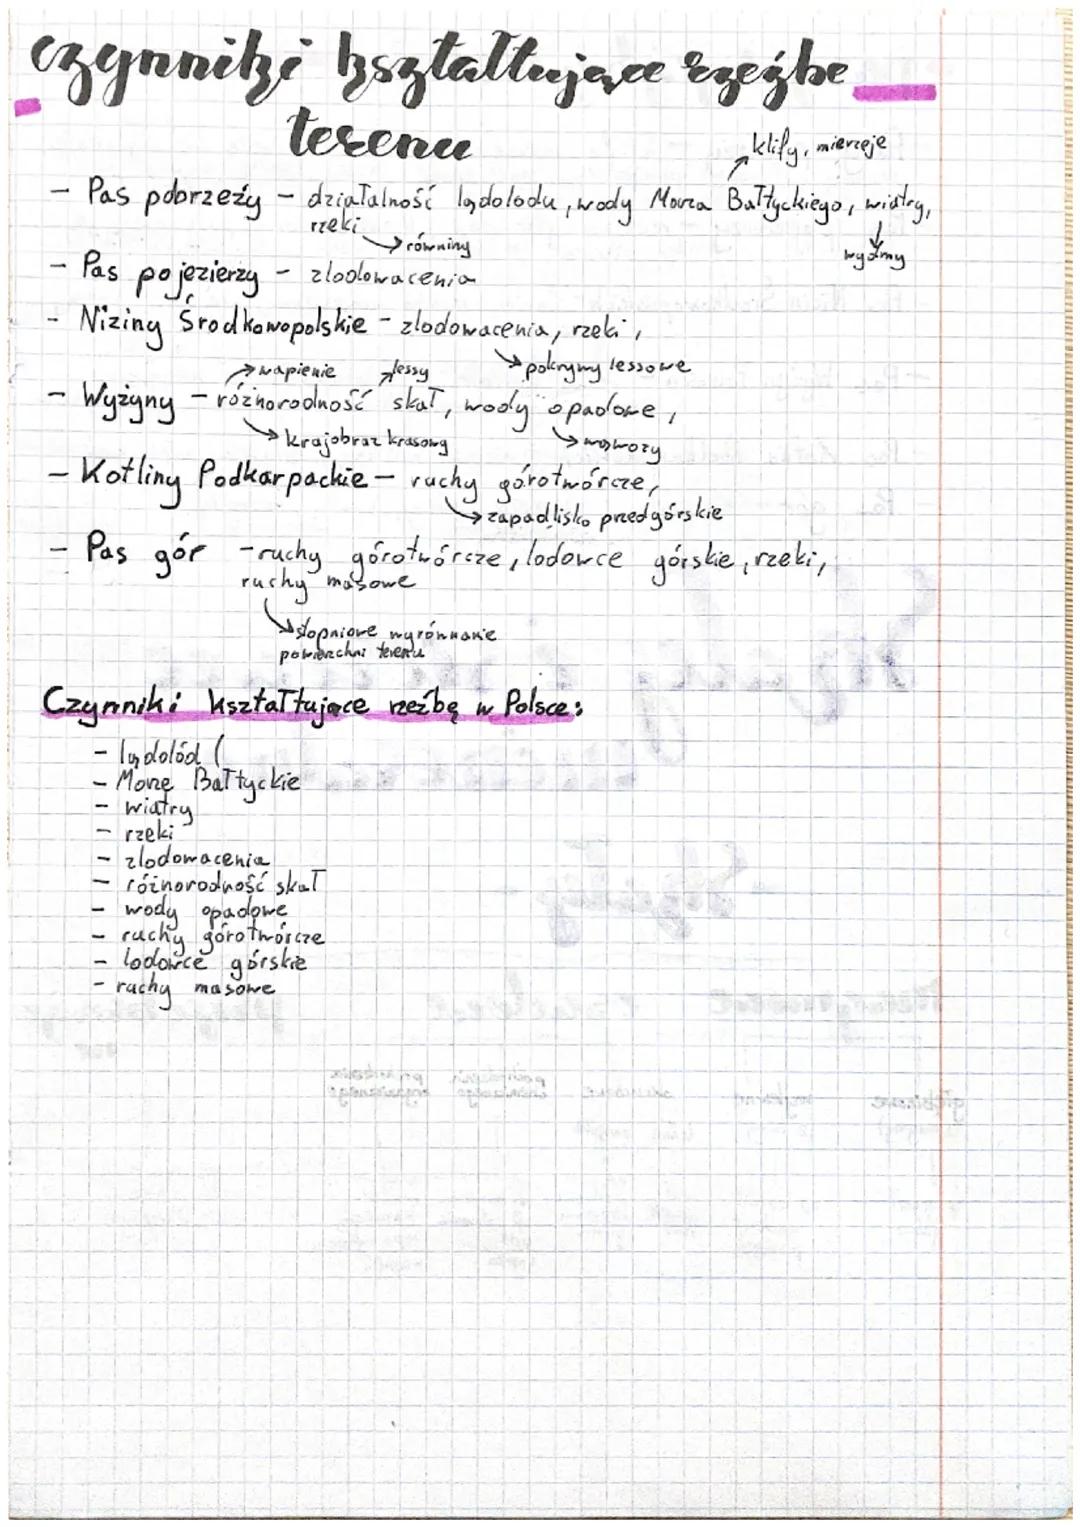 czynniki kształtujące rzeźbe
terenu
klify, mierzeje
- Pas pobrzeży - działalność lądolodu, wody Morza Bałtyckiego, wiatry,
rzeki
równiny
wydmy
- Pas pojezierzy - zlodowacenia
- Niziny Środkowopolskie - zlodowacenia, rzeki,
pokrywy lessowe
wapienie lessy
- Wyżyny - różnorodność skał, wody opadowe,
krajobraz krasowy wąwozy
- Kotliny Podkarpackie - ruchy górotwórcze,
zapadlisko przedgórskie
- Pas gór - ruchy górotwórcze, lodowce górskie, rzeki,
ruchy masowe
stopniowe wyrównanie
powierzchni terenu
Czynniki kształtujące rzeźbę w Polsce:
- lądolód (
- Morze Bałtyckie
- wiatry
- rzeki
- zlodowacenia
- różnorodność skał
- wody opadowe
- ruchy górotwórcze
- lodowce górskie
- ruchy masowe